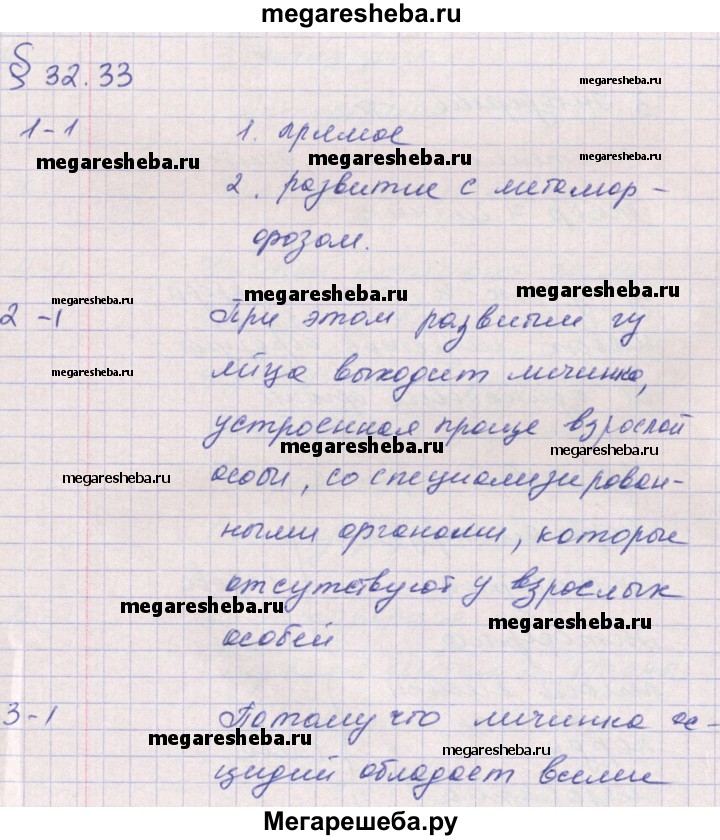 megaresheba.ru
§ 32.33
megaresheba.ru
1-1 1. прямое
megaresheba.ru megaresheba.ru megaresheba.ru
2. развитие с метамор-
фозом.
megaresheba.ru megaresheba.ru megaresheba.ru
2-1 При этом развитии
яйца выходит личинка,
megaresheba.ru
устроенная проще взрослой
megaresheba.ru megaresheba.ru
особи, со специализирован-
megaresheba.ru
ными органами, которые
отсутствуют у взрослых
megaresheba.ru megaresheba.ru
особей
3-1 Потому что личинка ас-
megaresheba.ru megaresheba.ru
цидий обладает всеми
Мегарешеба.ру